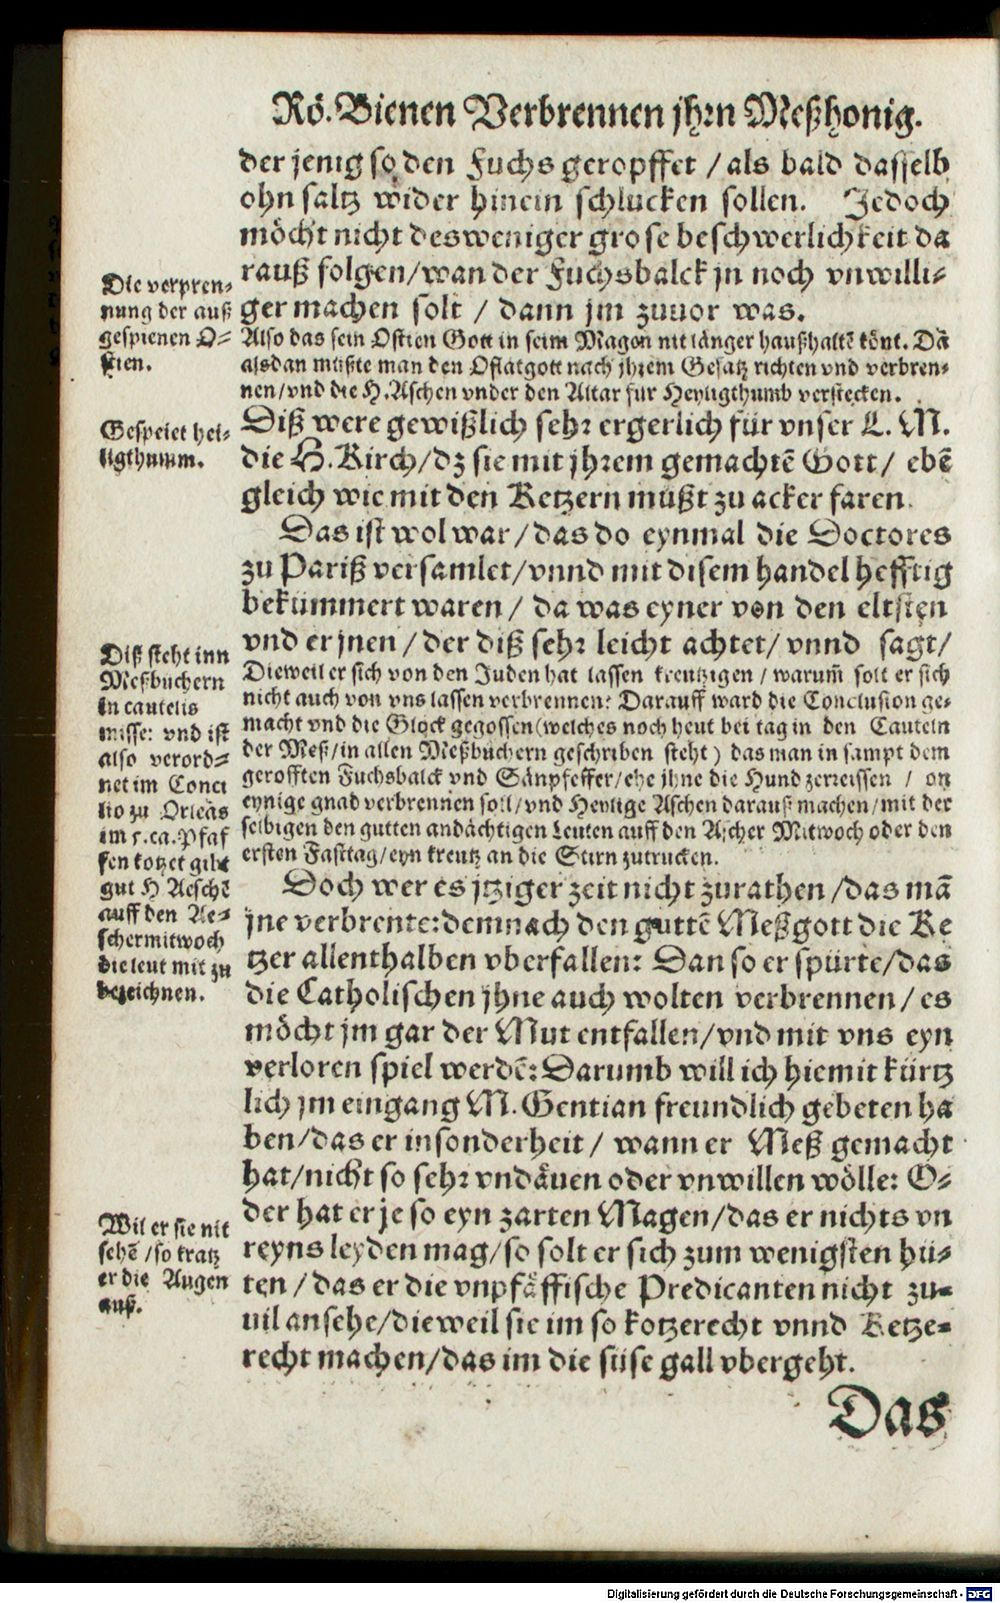 Rö. Bienen Verbrennen jhrn Meßhonig.
der jenig so den Fuchs geropffet / als bald dasselb
ohn saltz wider hinein schlucken sollen. Jedoch
möcht nicht desweniger grose beschwerlichkeit da
rauß folgen/wan der Fuchsbalck jn noch vnwilli-
ger machen solt / dann jm zuuor was.
Also das sein Ostien Gott in seim Magen nit länger haußhaltē könt. Dā
alsdan müßte man den Oflatgott nach jhrem Gesatz richten vnd verbren-
nen/vnd die H. Aschen vnder den Altar für Heyligthumb verstecken.
Diß were gewißlich sehr ergerlich für vnser L. M.
die H. Kirch/dz sie mit jhrem gemachtē Gott/ ebē
gleich wie mit den Ketzern mußt zu acker faren.
Das ist wol war/das do eynmal die Doctores
zu Pariß versamlet/vnnd mit disem handel hefftig
bekümmert waren/ da was eyner von den eltsten
vnd er jnen/der diß sehr leicht achtet/ vnnd sagt/
Dieweil er sich von den Juden hat lassen kreutzigen / warum̄ solt er sich
nicht auch von vns lassen verbrennen: Darauff ward die Conclusion ge-
macht vnd die Glock gegossen (welches noch heut bei tag in den Cauteln
der Meß/in allen Meßbüchern geschriben steht) das man in sampt dem
gerofften Fuchsbalck vnd Sänpfeffer/ehe jhne die Hund zerreissen / on
eynige gnad verbrennen soll/vnd Heylige Aschen darauß machen/mit der
selbigen den gutten andächtigen Leuten auff den Ascher Mitwoch oder den
ersten Fasttag/eyn kreutz an die Stirn zutrucken.
Doch wer es jtziger zeit nicht zurathen/das mā
jne verbrente: demnach den guttē Meßgott die Ke
tzer allenthalben vberfallen: Dan so er spürte/das
die Catholischen jhne auch wolten verbrennen/es
möcht jm gar der Mut entfallen/vnd mit vns eyn
verloren spiel werdē: Darumb will ich hiemit kürtz
lich jm eingang M. Gentian freundlich gebeten ha
ben/das er insonderheit / wann er Meß gemacht
hat/nicht so sehr vndäuen oder vnwillen wölle: O-
der hat er je so eyn zarten Magen/das er nichts vn
reyns leyden mag/so solt er sich zum wenigsten hü-
ten / das er die vnpfäffische Predicanten nicht zu-
uil ansehe/dieweil sie im so kotzerecht vnnd Ketze-
recht machen/das im die süse gall vbergeht.
Das
Die verpren-
nung der auß
gespienen O-
stien.
Gespeiet hei-
ligthumm.
Diß steht inn
Meßbüchern
in cautelis
misse: vnd ist
also verord-
net im Conci
lio zu Orleās
im 5. ca. Pfaf
fen kotzet gibt
gut H Aeschē
auff den Ae-
schermitwoch
die leut mit zu
bezeichnen.
Wil er sie nit
sehē/so kratz
er die Augen
auß.
Digitalisierung gefördert durch die Deutsche Forschungsgemeinschaft - DFG